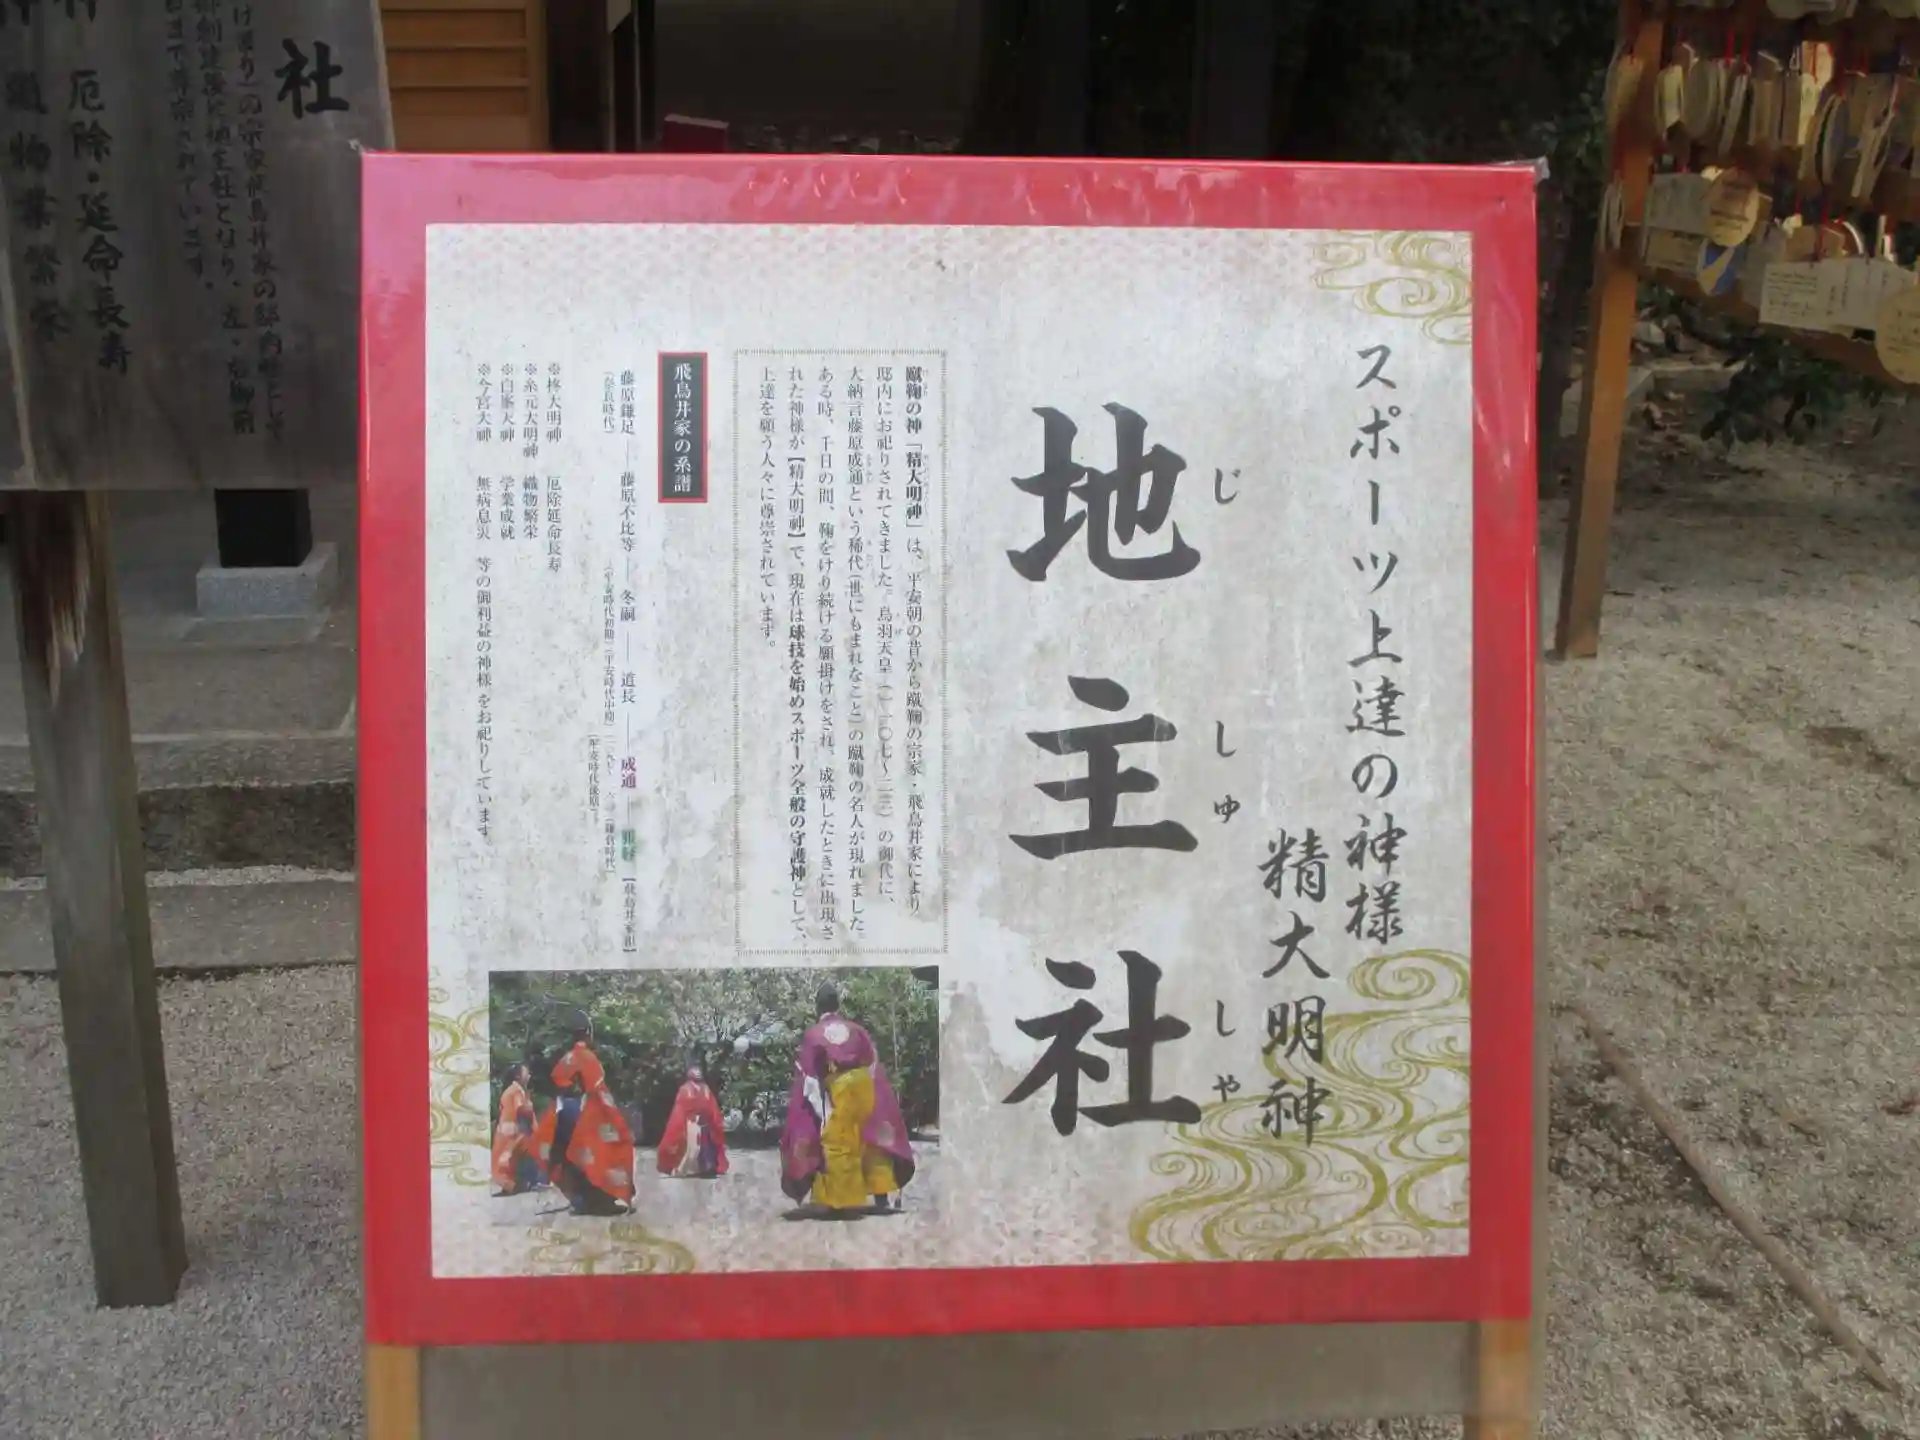 スポーツ上達の神様
精大明神
地主社
じしゅしゃ
蹴鞠の神「精大明神」は、平安朝の昔から蹴鞠の宗家・飛鳥井家により
邸内にお祀りされてきました。鳥羽天皇（一一〇七〜二三）の御代に、
大納言藤原成通という稀代（世にもまれなこと）の蹴鞠の名人が現れました。
ある時、千日の間、鞠をけり続ける願掛けをされ、成就したときに出現さ
れた神様が【精大明神】で、現在は球技を始めスポーツ全般の守護神として、
上達を願う人々に尊崇されています。
飛鳥井家の系譜
藤原鎌足 ― 藤原不比等 ― 冬嗣 ― 道長 ― 成通 ― 雅経【飛鳥井家祖】
（奈良時代） （平安時代初期） （平安時代中期） （平安時代後期） （鎌倉時代）
※柊大明神 厄除延命長寿
※糸元大明神 織物繁栄
※白峯大神 学業成就
※今宮大神 無病息災 等の御利益の神様をお祀りしています。
社
けまり）の宗家飛鳥井家の邸内
御創建後に地主社となり、左・右御前
日まで尊崇されています。
厄除・延命長寿
織物業繁栄